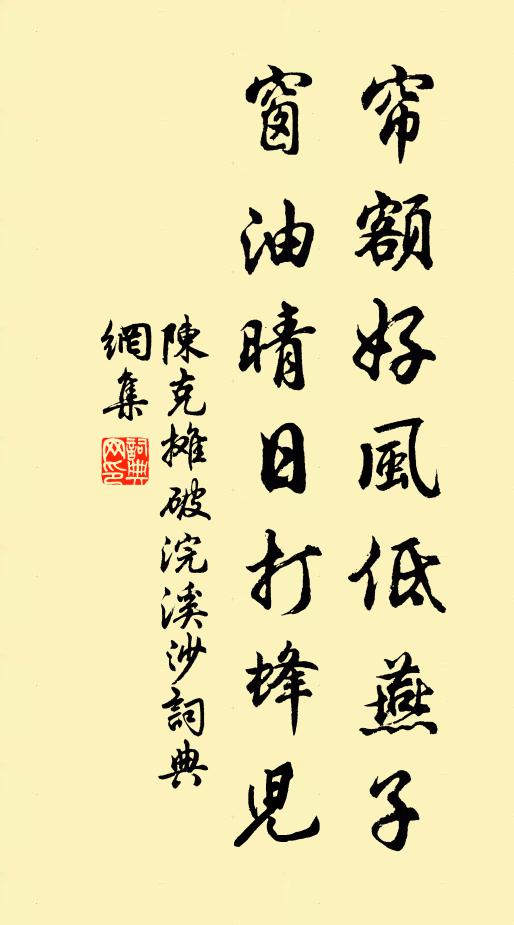 帘額好風低燕子
窗油晴日打蜂兒
陳克攤破浣溪沙詞典
網集
詞典
网印